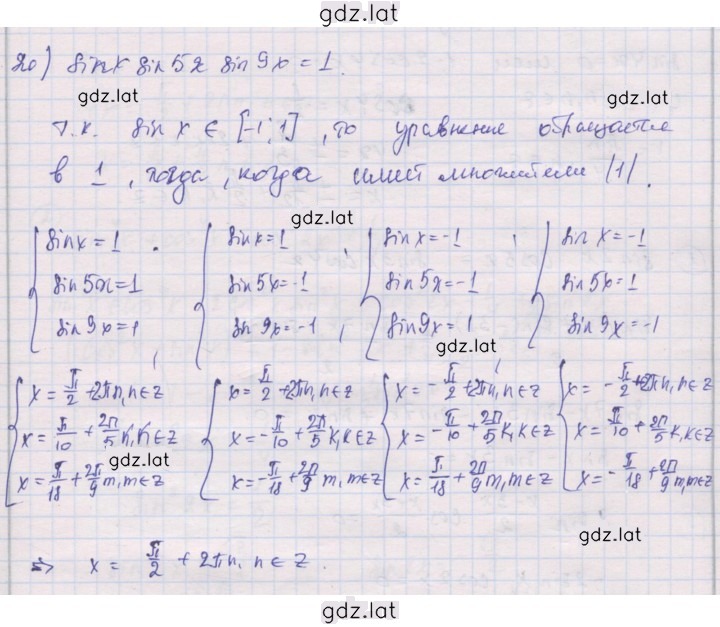 gdz.lat
20) sin x sin 5x sin 9x = 1.
gdz.lat
gdz.lat
т.к. sin x ∈ [-1; 1], то уравнение обращается
в 1, тогда, когда имеет множители |1|.
gdz.lat
{ sin x = 1 { sin x = 1 { sin x = -1 { sin x = -1
sin 5x = 1 sin 5x = -1 sin 5x = -1 sin 5x = 1
sin 9x = 1 , sin 9x = -1 , sin 9x = 1 , sin 9x = -1
gdz.lat
{ x = π/2 + 2πn, n ∈ Z { x = π/2 + 2πn, n ∈ Z { x = -π/2 + 2πn, n ∈ Z { x = -π/2 + 2πn, n ∈ Z
x = π/10 + 2π/5 k, k ∈ Z x = -π/10 + 2π/5 k, k ∈ Z x = -π/10 + 2π/5 k, k ∈ Z x = π/10 + 2π/5 k, k ∈ Z
gdz.lat
x = π/18 + 2π/9 m, m ∈ Z x = -π/18 + 2π/9 m, m ∈ Z x = π/18 + 2π/9 m, m ∈ Z x = -π/18 + 2π/9 m, m ∈ Z
gdz.lat
=> x = π/2 + 2πn, n ∈ Z.
gdz.lat